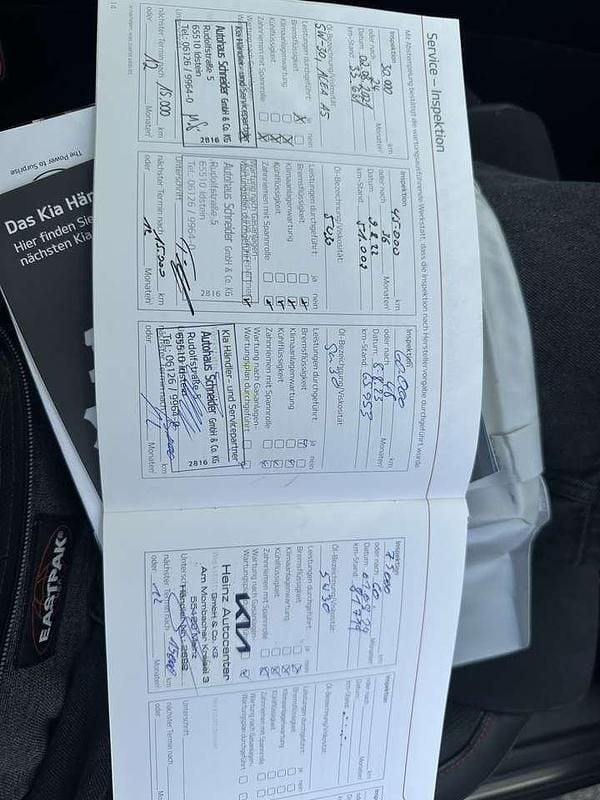 Service – Inspektion
Mit Abstempelung bestätigt die wartungsausführende Werkstatt, dass die Inspektion nach Herstellervorgabe durchgeführt wurde
Inspektion
30.000 km
oder nach 24 Monaten
Datum:
km-Stand:
Öl-Bezeichnung/Viskosität:
Leistungen durchgeführt: ja nein
Bremsflüssigkeit
Klimaanlagenwartung
Kühlflüssigkeit
Zahnriemen mit Spannrolle
Kia Händler- und Servicepartner
Autohaus Schneider GmbH & Co. KG
Rudolfstraße 5
65510 Idstein
Tel.: 06126 / 9964-0
2816
nächster Termin nach 15.000 km
oder 12 Monaten
14
Inspektion
45.000 km
oder nach 36 Monaten
Datum: 9.8.22
km-Stand: 51.009
Öl-Bezeichnung/Viskosität:
5W30
Leistungen durchgeführt: ja nein
Bremsflüssigkeit
Klimaanlagenwartung
Kühlflüssigkeit
Zahnriemen mit Spannrolle
Wartung nach Gasanlagen-
Autohaus Schneider GmbH & Co. KG
Rudolfstraße 5
65510 Idstein
Tel.: 06126 / 9964-0
2816
Unterschrift
nächster Termin nach 15.000 km
oder 12 Monaten
Inspektion
60.000 km
oder nach 48 Monaten
Datum:
km-Stand: 65.953
Öl-Bezeichnung/Viskosität:
5W30
Leistungen durchgeführt: ja nein
Bremsflüssigkeit
Klimaanlagenwartung
Kühlflüssigkeit
Zahnriemen mit Spannrolle
Wartung nach Gasanlagen-
Wartungsplan durchgeführt
Kia Händler- und Servicepartner
Autohaus Schneider GmbH & Co. KG
Rudolfstraße 5
65510 Idstein
Tel.: 06126 / 9964-0
2816
oder 12 Monaten
Inspektion
75000 km
oder nach 60 Monaten
Datum:
km-Stand:
Öl-Bezeichnung/Viskosität:
5W30
Leistungen durchgeführt: ja nein
Bremsflüssigkeit
Klimaanlagenwartung
Kühlflüssigkeit
Zahnriemen mit Spannrolle
Wartung nach Gasanlagen-
Wartungsplan
KIA
Heinz Autocenter
GmbH & Co. KG
Am Mombacher Kreisel 3
Mainz
nächster Termin nach 15000 km
oder 12 Monaten
Inspektion
km
oder nach Monaten
Datum:
km-Stand:
Öl-Bezeichnung/Viskosität:
Leistungen durchgeführt: ja nein
Bremsflüssigkeit
Klimaanlagenwartung
Kühlflüssigkeit
Zahnriemen mit Spannrolle
Wartung nach Gasanlagen-
Wartungsplan durchgeführt
Unterschrift
nächster Termin nach
oder
The Power to Surprise
Das Kia Hän
Hier finden Sie
nächsten Kia
EASTPAK